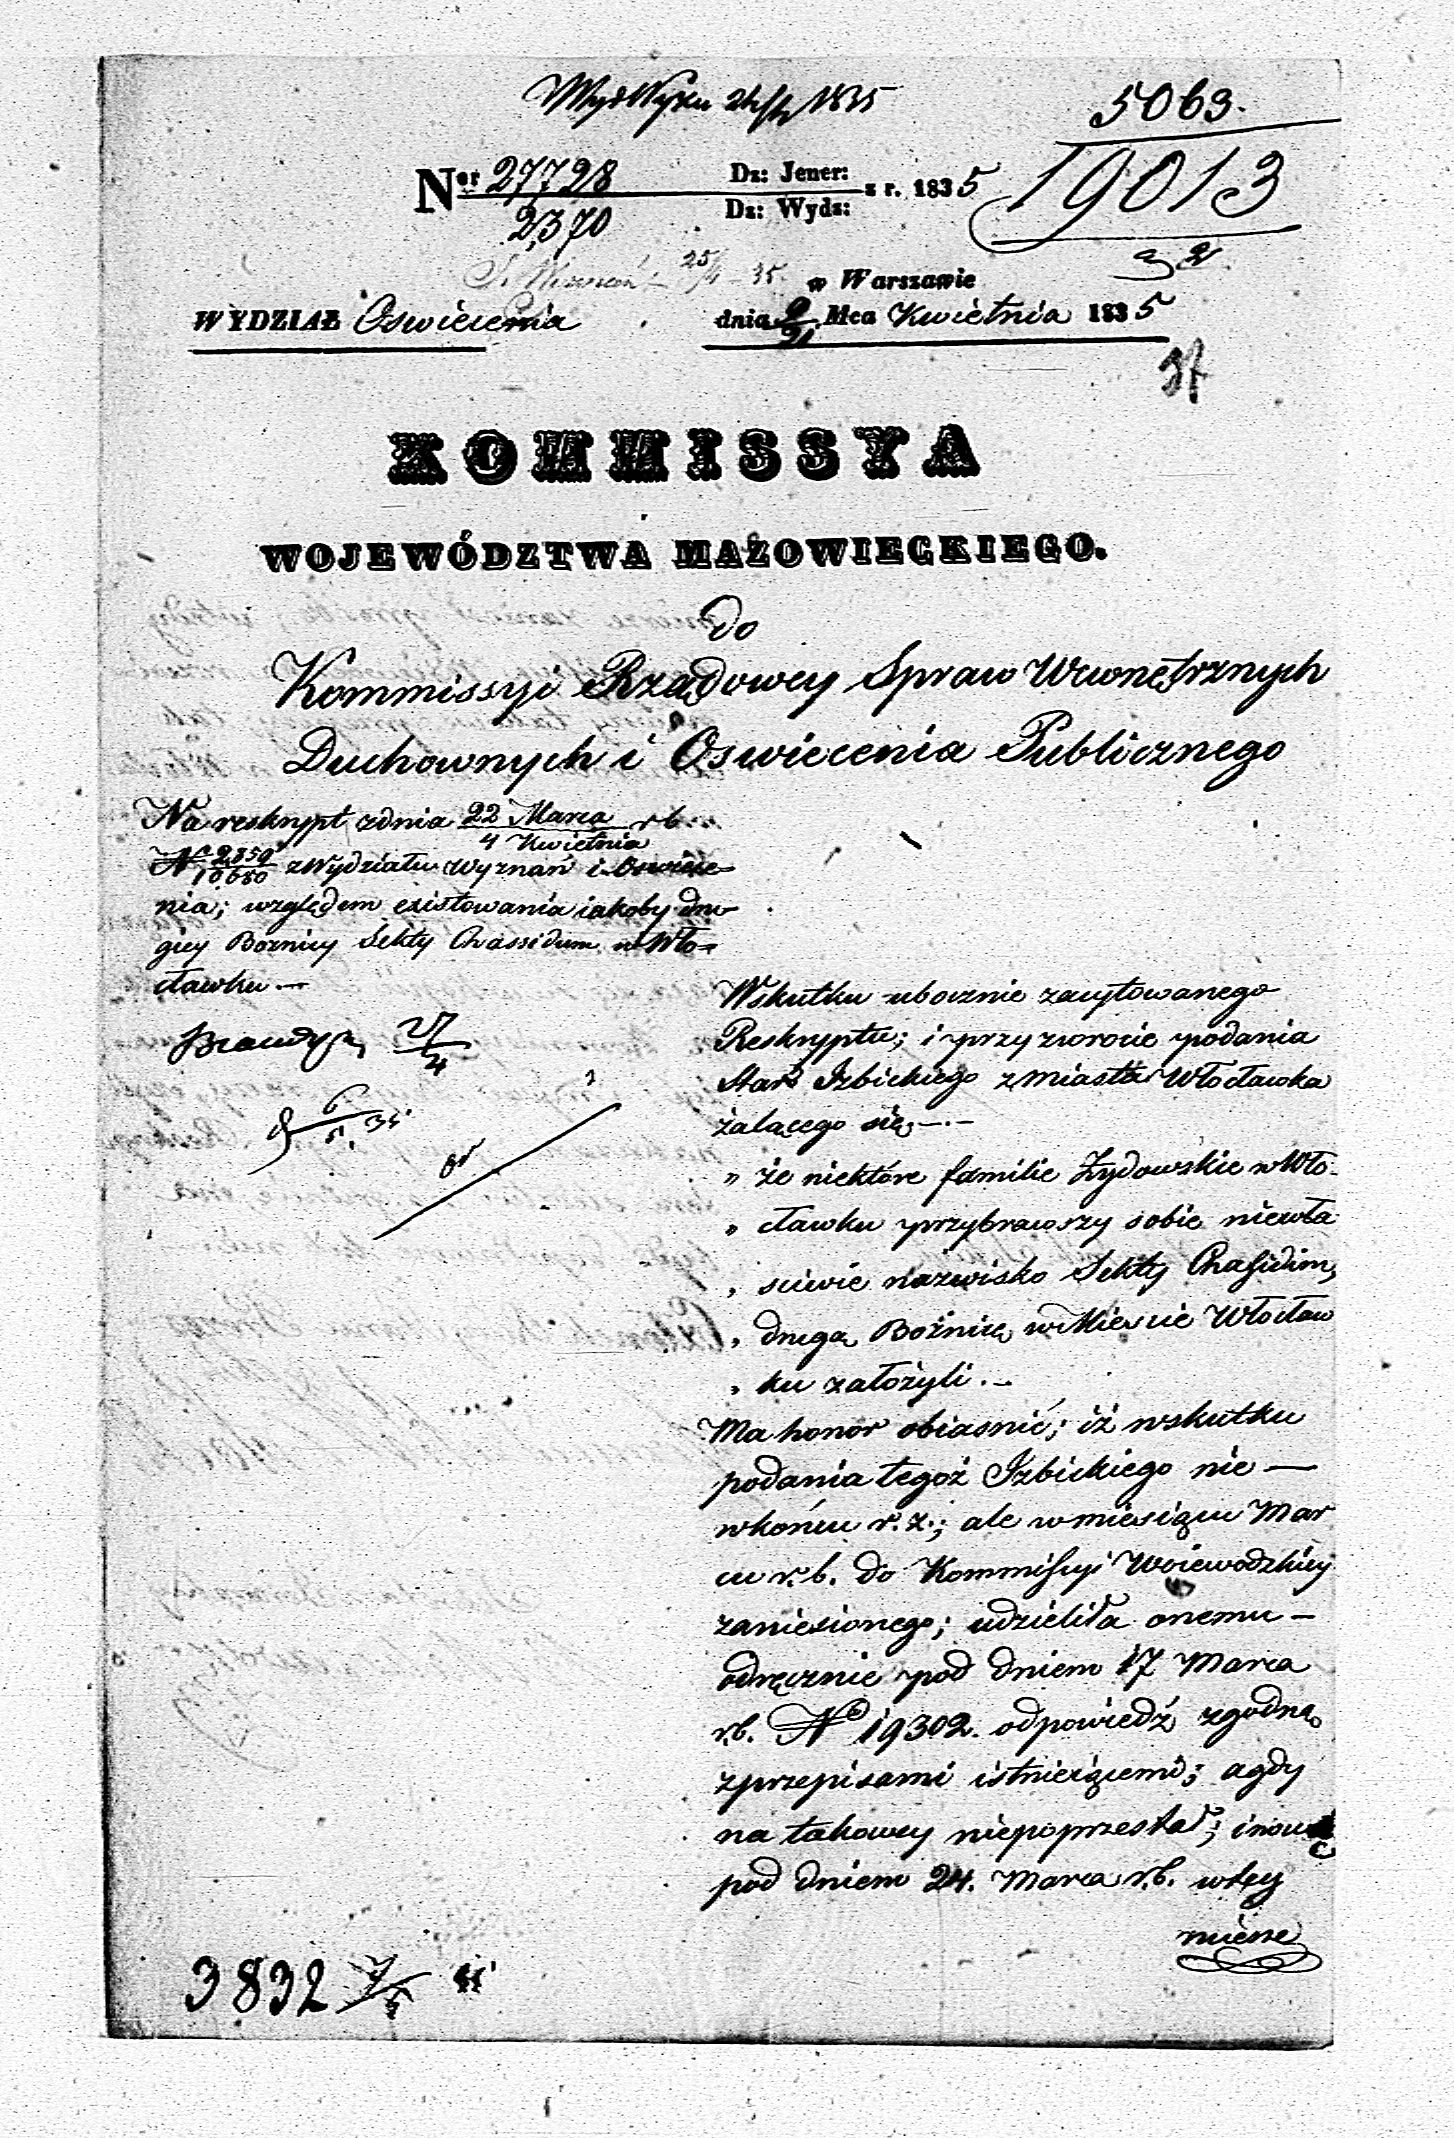 24/4 1835
5063.
Nor 27798 Dz: Jener: z r. 1835
2370 Dz: Wydz:
19013
32
25/4 - 35.
w Warszawie
WYDZIAŁ Oswiecenia dnia 9/21 Mca Kwietnia 1835
37
KOMMISSYA
WOJEWÓDZTWA MAZOWIECKIEGO.
do
Kommissyi Rządowey Spraw Wewnętrznych
Duchownych i Oswiecenia Publicznego
Na reskrypt zdnia 22 Marca / 4 Kwietnia rb.
No 2859/10680 z Wydziału Wyznań i Oswiece-
nia; względem existowania iakoby dru-
giey Boznicy Sekty Chassidum w Wło-
cławku —
27/4
6/5. 35.
Wskutku ubocznie zacytowanego
Reskryptu; i przy zwrocie podania
Star. Izbickiego z miasta Włocławka
żalącego się. —.—
„ że niektóre familie Żydowskie w Wło-
„ cławku przybrawszy sobie niewła-
„ sciwie nazwisko Sekty Chassidim,
„ drugą Bożnicę w Miescie Włocław
„ ku założyli. —
Ma honor obiasnić; iż wskutku
podania tegoż Izbickiego nie —
wkońcu r. z.; ale w miesiącu Mar
cu r. b. do Kommissyi Woiewodzkiey
zaniesionego; udzieliła onemu —
odręcznie pod dniem 17 Marca
r.b. No 19302. odpowiedź zgodną
z przepisami istnieiącemi; a gdy
na takowey niepoprzestał; i nową
pod dniem 24. Marca r.b. w tey
mierze
3832 7/5 35